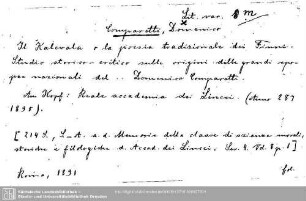 Lit. var. 8 m
Comparetti, Domenico
Il Kalevala o la poesia tradizionale dei Finni.
Studio storico-critico sulle origini delle grandi epopee nazionali del .. Domenico Comparetti.
Am Kopf: Reale accademia dei Lincei. (Anno 287
1890).
[214 S., S.-A. a. d. Memorie della classe di scienze morali,
storiche e filologiche d. Accad. dei Lincei. Ser. 4. Vol 8 p. 1]
Roma, 1891
fol.